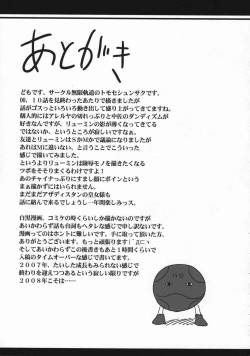 あとがき
どもです。サークル無限軌道のトモセシュンサクです。
00、10話を見終わったあたりで描きましたが
話がゴスっといろいろ動き出して盛り上がってきますね。
個人的にはアレルヤの切れっぷりと中佐のダンディズムが
好きなんですが、リューミンの影が薄くなってきてる
ではないか、というところが寂しいですなぁ。
友達とリューミンはSかMかで論争になりましたが
あれはMに違いない、と言うことでこういった
感じで描いてみました。
というよりリューミンは陵辱モノを描きたくなる
ツボをそそりまくるわけですよ！
あのチャイナっぷりにすまし顔にボインという
まぁ描かずにはいられませんでした。
まだまだアザディスタンの皇女様も
話に絡んで来るでしょうし一年間楽しみっス。

白黒漫画、コミケの時くらいしか描かないのですが
あいかわらず話も台詞もヘタレな感じで申し訳ないです。
漫画ってのはホントに難しいです。買って頂いた方、
ありがとうございます。もっと頑張ります
そしてあいかわらずこの後書きもあと1時間くらいで
入稿のタイムオーバーな感じで書いてます。
2007年、たいした成長もみられない感じで
終わりを迎えつつあるという寂しい限りですが
2008年こそは……